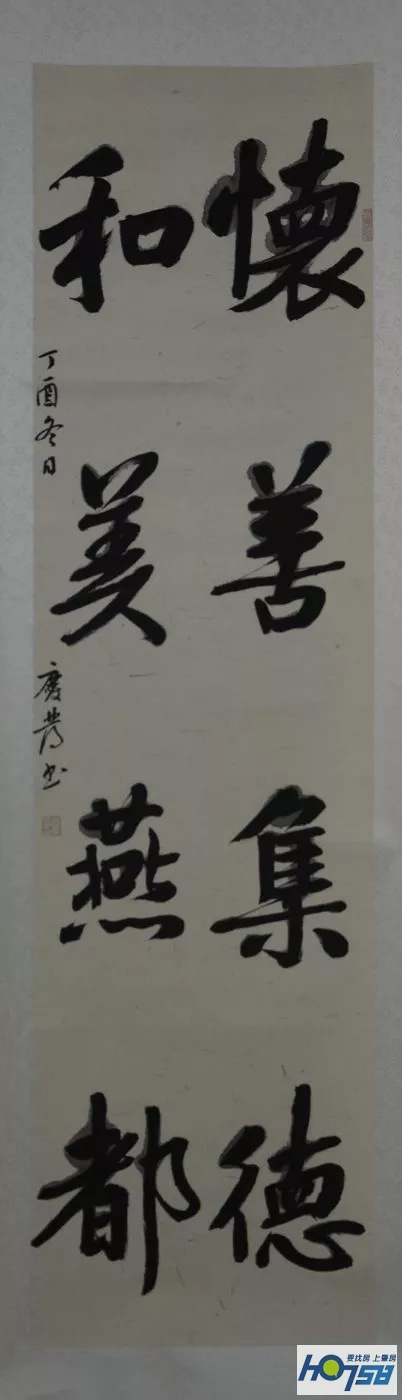 懷善集德
和美燕都
丁酉冬日
慶
书
要找房 上肇房
HO758